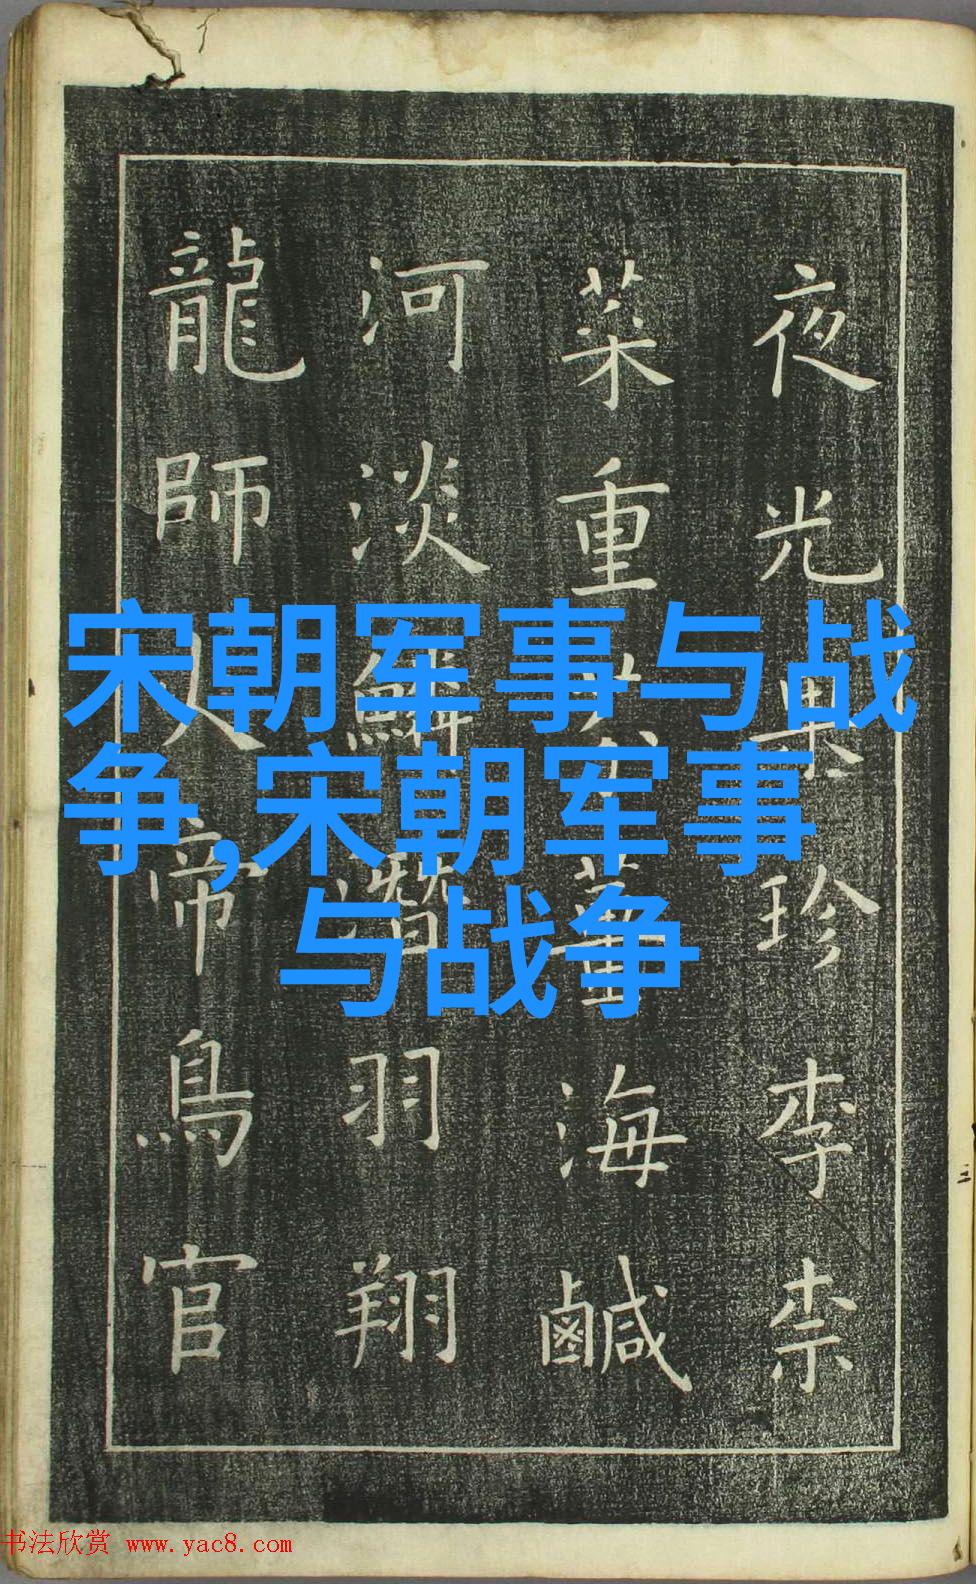 夜光果珍李柰
菜重芥薑海鹹
河淡鱗潛羽翔
龍師火帝鳥官
宋朝军事与战
争,宋朝军事
与战争
书法欣赏 www.yac8.com